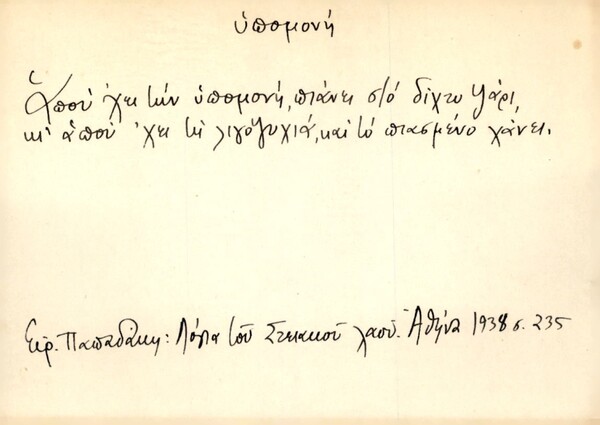 ὑπομονή
Ἁποὺ ἔχει τὴν ὑπομονή, πιάνει στὸ δίχτυ ψάρι,
κι' ἁποὺ 'χει τὴ λιγοψυχιά, καὶ τὸ πιασμένο χάνει.
Εἰρ. Παπαδάκη: Λόγια τοῦ Στειακοῦ λαοῦ. Ἀθήνα 1938 σ. 235